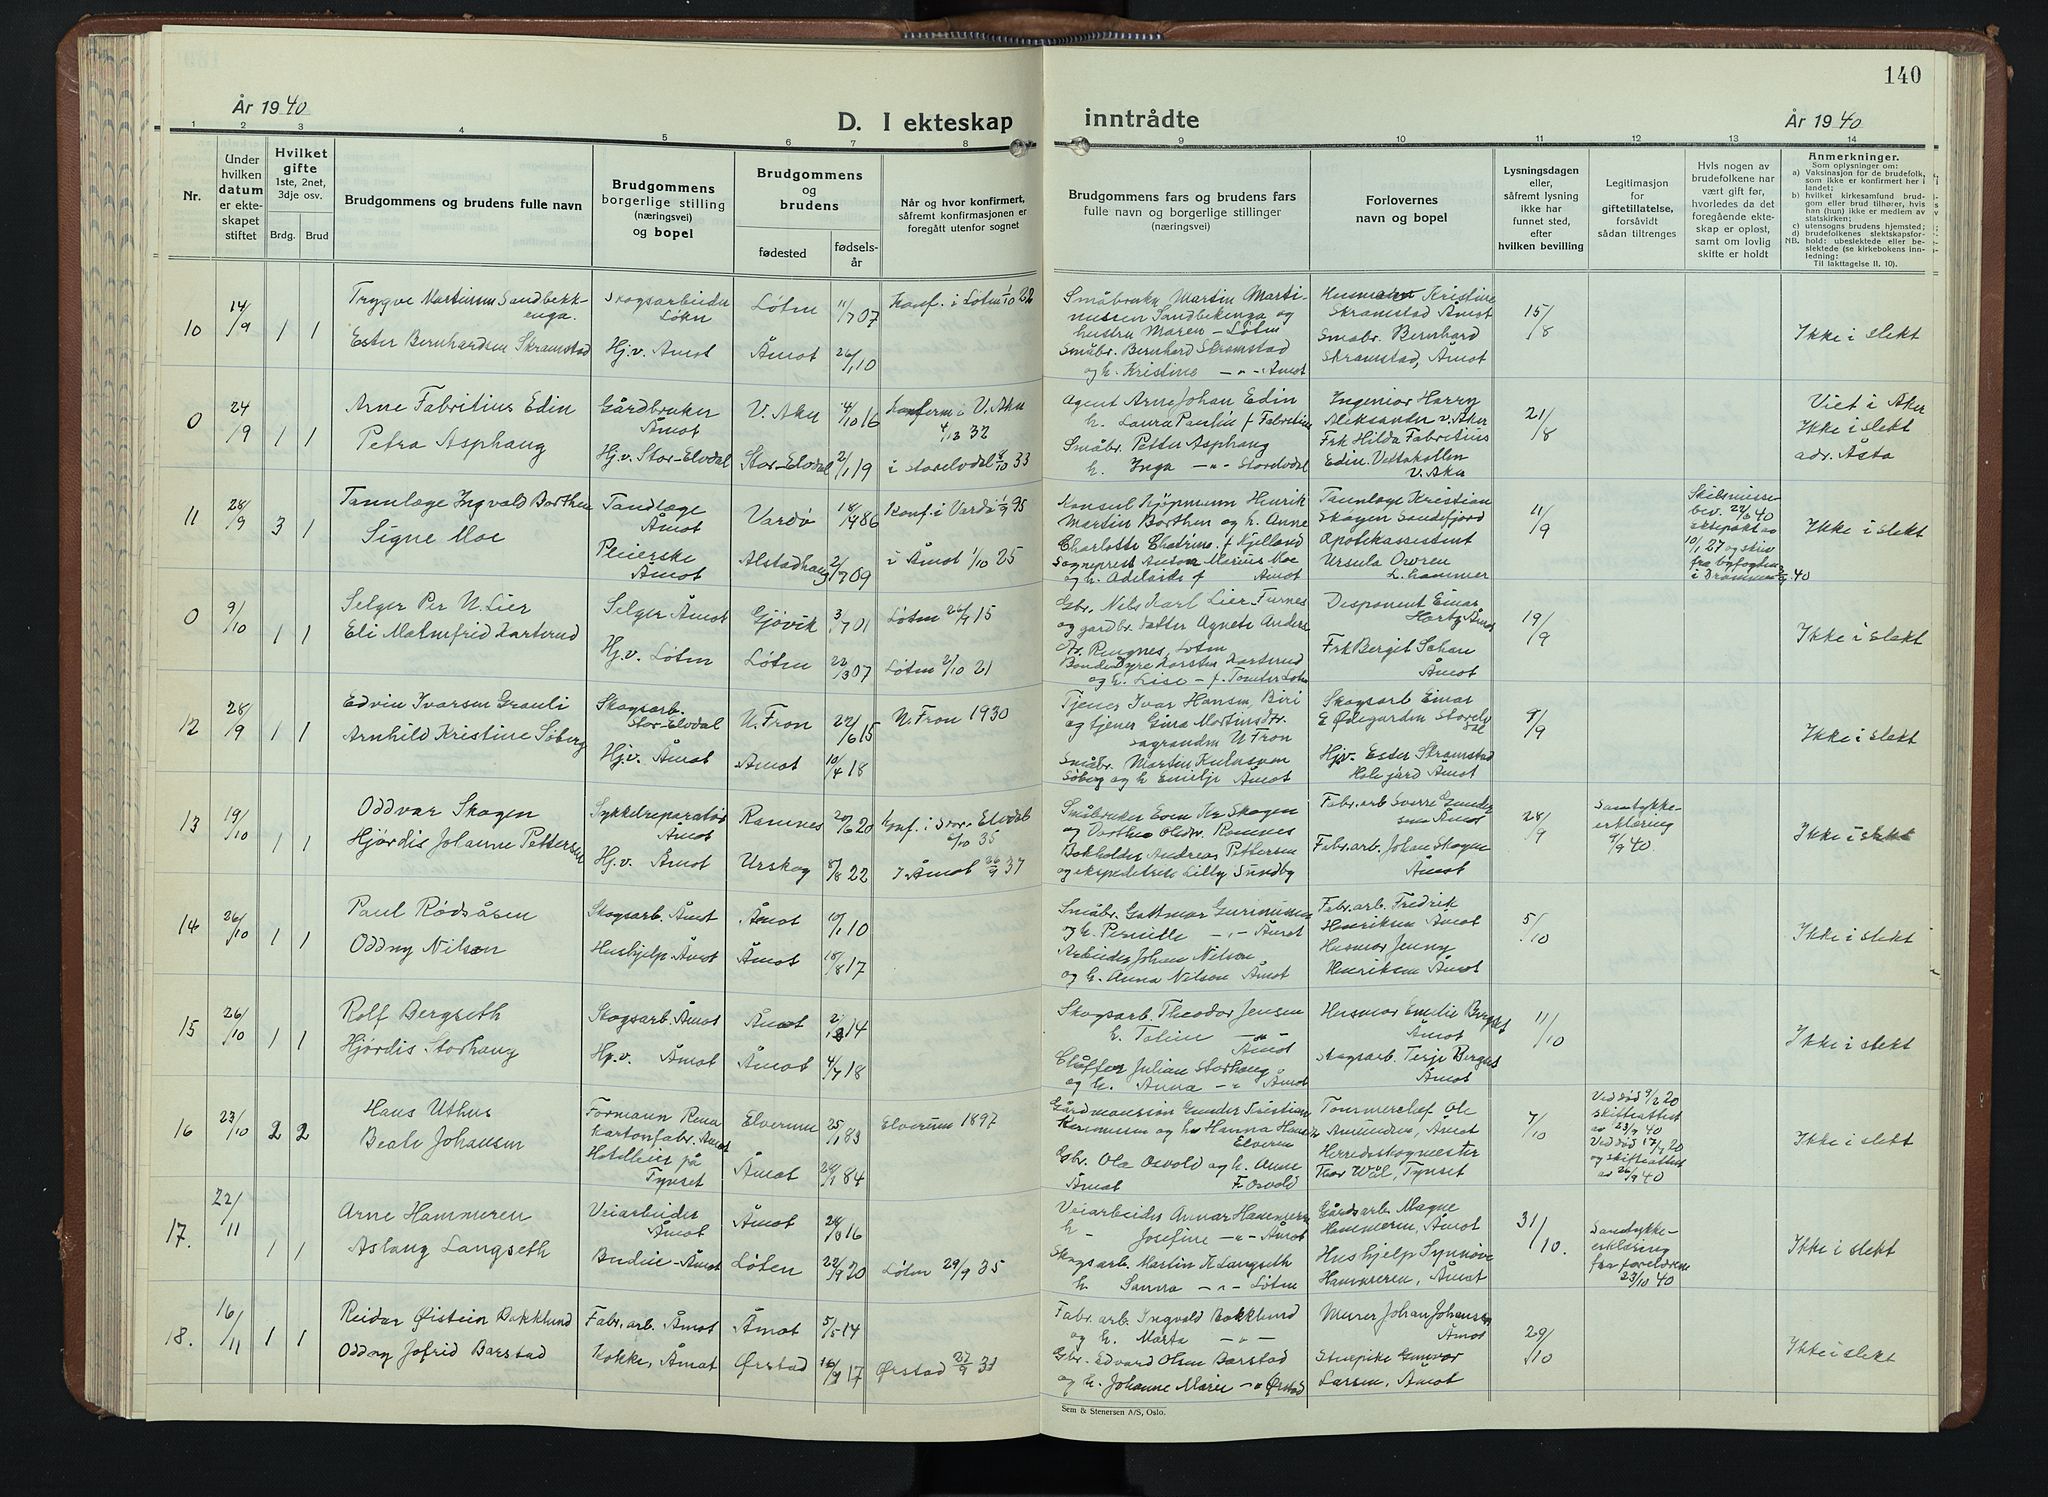 140
År 1940
D. I ekteskap inntrådte
År 1940
1 2 3 4 5 6 7 8 9 10 11 12 13 14
Nr.
Under hvilken datum er ekteskapet stiftet
Hvilket gifte
1ste, 2net, 3dje osv.
Brdg. Brud
Brudgommens og brudens fulle navn
Brudgommens borgerlige stilling (næringsvei) og bopel
Brudgommens og brudens
fødested
fødselsår
Når og hvor konfirmert, såfremt konfirmasjonen er foregått utenfor sognet
Brudgommens fars og brudens fars fulle navn og borgerlige stillinger (næringsvei)
Forlovernes navn og bopel
Lysningsdagen eller, såfremt lysning ikke har funnet sted, efter hvilken bevilling
Legitimasjon for giftetillatelse, forsåvidt sådan tiltrenges
Hvis nogen av brudefolkene har vært gift før, hvorledes da det foregående ekteskap er opløst, samt om lovlig skifte er holdt
Anmerkninger.
Som oplysninger om:
a) Vaksinasjon for de brudefolk, som ikke er konfirmert her i landet;
b) hvilket kirkesamfund brudgom eller brud tilhører, hvis han (hun) ikke er medlem av statskirken;
c) utensogns brudens hjemsted;
d) brudefolkenes slektskapsforhold: ubeslektede eller beslektede (se kirkebokens innledning:
NB.
Til Iakttagelse II. 10).
10 14/9 1 1
Trygve Martinsen Sandbekkenga.
Skogsarbeider Løten
Løten 11/7 07
Konf. i Løten 1/10 22
Småbruker Martin Martinussen Sandbekenga og hustru Maren - Løten
Kristine Skramstad Åmot
15/8
Ester Bernhardsen Skramstad
Hj.v. Åmot
Åmot 26/1 10
Småbr. Bernhard Skramstad og h. Kristine - " - Åmot
Småbr. Bernhard Skramstad, Åmot
Ikke i slekt
0 24/9 1 1
Arne Fabritius Edin
Gårdbruker Åmot
V. Aker 4/10 16
Konferm i V. Aker 4/12 32
Agent Arne Johan Edin h. Laura Paulin f Fabritius
Ingeniør Harry Aleksander V. Aker
21/8
Viet i Aker
Ikke i slekt
adr. Åsta
Petra Asphaug
Hj.v. Stor-Elvdal
Stor-Elvdal 2/1 19
i Storelvdal 8/10 33
Småbr. Petter Asphaug h. Inga - " - Storelvdal
Frk Hilda Fabritius Edin. Vettakollen V. Aker
11 28/9 3 1
Tannlæge Ingvald Borthen
Tandlæge Åmot
Vardø 18/4 86
Konf. i Vardø 1/9 95
Konsul Kjøpmann Henrik Martin Borthen og h. Anne Charlotte
Tannlæge Kristian Skogen Sandefjord
11/9
Ikke i slekt
Signe Moe
Pleierske Åmot
Alstadhaug 2/7 09
i Åmot 1/10 25
Sogneprest Anton Marius Moe og h. Adelaide f Åmot
Apotekassistent Ursula L.hammer
10/1 27 og skriv fra byfogden i Drammen
0 9/10 1 1
Selger Per N. Lier
Selger Åmot
Gjøvik 3/7 01
Løten 26/9 15
Gbr. Nils Karl Lier Furnes og gardbr. datter Agnete Løten
Disponent Einar Hartz Åmot
19/9
Ikke i slekt
Eli Malmfrid Karterud
Hj.v. Løten
Løten 22/3 07
Løten 2/10 21
Karsten Karterud og h. Lise - f. Tomter Løten
Frk Bergit Åmot
12 28/9 1 1
Edvin Ivarsen Grauli
Skogsarb. Stor-Elvdal
N. Fron 22/6 15
N. Fron 1930
Tjener Ivar Hansen, Biri og tjener Gina Martinsdtr. N Fron
Skogsarb Einar E Ødegarden Storelvdal
9/9
Ikke i slekt
Arnhild Kristine Søberg
Hj.v. Åmot
Åmot 10/4 18
Småbr. Morten Søberg og h Emilje Åmot
Hjv. Ester Skramstad Åmot
13 19/10 1 1
Oddvar Skogen
Sykkelreparatør Åmot
Ramnes 20/6 20
Konf. i Stor-Elvdal 6/10 35
Småbruker Even Kr Skogen og Dorthea Olsdtr. Ramnes
Fabr. arb Sverre Åmot
28/9
Samtykkeerklæring 9/9 40.
Ikke i slekt
Hjørdis Johanne Pettersen
Hj.v. Åmot
Urskog 8/8 22
I Åmot 26/9 37
Bokholder Andreas Pettersen og ekspeditrise Lilly Sundby
Fabr. arb. Johan Skogen Åmot
14 26/10 1 1
Paul Rødsåsen
Skogsarb. Åmot
Åmot 10/1 10
Småbr. og h. Pernille - " - Åmot
Fabr. arb. Fredrik Henriksen Åmot
5/10
Ikke i slekt
Oddny Nilsen
Hushjelp Åmot
Åmot 18/8 17
Arbeider Johan Nilsen og h. Anna Nilsen Åmot
Husmor Jenny Henriksen Åmot
15 26/10 1 1
Rolf Bergseth
Skogsarb. Åmot
Åmot 14
Skogsarb. Theodor Jensen h. Toline - " - Åmot
Husmor Emilie Bergset Åmot
11/10
Ikke i slekt
Hjørdis Storhaug
Hp.v. Åmot
Åmot 4/7 18
Julian Storhaug og h. Anna - " - Åmot
Skogsarb. Terje Bergset Åmot
16 23/10 2 2
Hans Uthus
Formann Rena Kartonfabr. Åmot
Elverum 25/1 83
Elverum 1897
Gunder Kristian og h. Hanna Elverum
Ole Amundsen, Åmot
7/10
Ved død 9/2 20 skifteattest av 23/9 40
Ikke i slekt
Beate Johansen
Hotelleier på Tynset
Åmot 28/1 84
Gbr. Ola Osvold og h. Anne Åmot F. Osvold
Herredsskogmester Thor Tynset
Ved død 17/7 20 og skifteattest av 26/9 40
17. 22/11 1 1
Arne Hammeren
Veiarbeider Åmot
Åmot 28/8 16
Veiarbeider Hammeren h - Josefine - " - Åmot
Gårdsarb. Magne Hammeren, Åmot
31/10.
Samtykkeerklæring fra foreldrene 23/10 40
Ikke i slekt
Aslaug Langseth
Budeie - Åmot
Løten 22/9 20
Løten 29/9 35
Skogsarb. Martin K Langseth h. Sanna - " - Løten
Hushjelp Synnøve Hammeren, Åmot
18. 16/11 1 1
Reidar Øistein Bakklund
Fabr. arb. Åmot
Åmot 5/5 14
Fabr. arb Ingvald Bakklund og h. Marta - " -
Murer Johan Johansen Åmot
29/10
Ikke i slekt
Oddny Jofrid Barstad
Kokke, Åmot
Ørstad 16/9 17
Ørstad 27/9 31
Gbr. Edvard Olsen Barstad og h. Johanne Marie - " - Ørstad
Gunvor Larsen, Åmot
Sem & Stenersen A/S, Oslo.